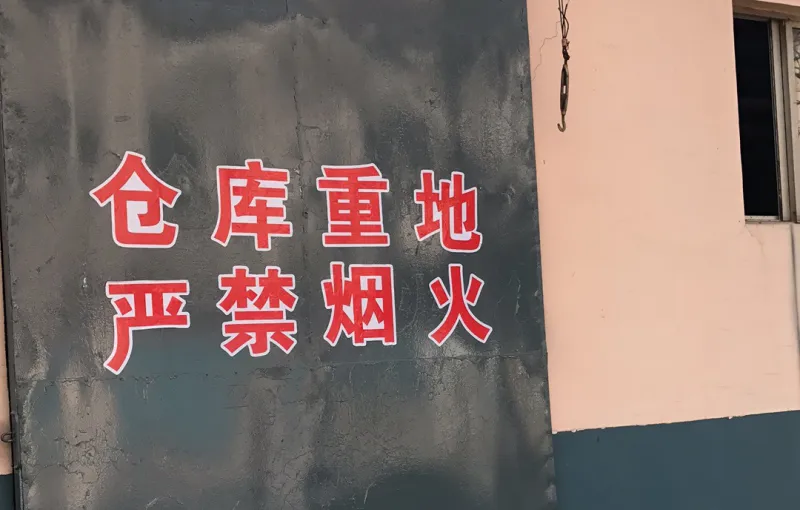 仓库重地
严禁烟火